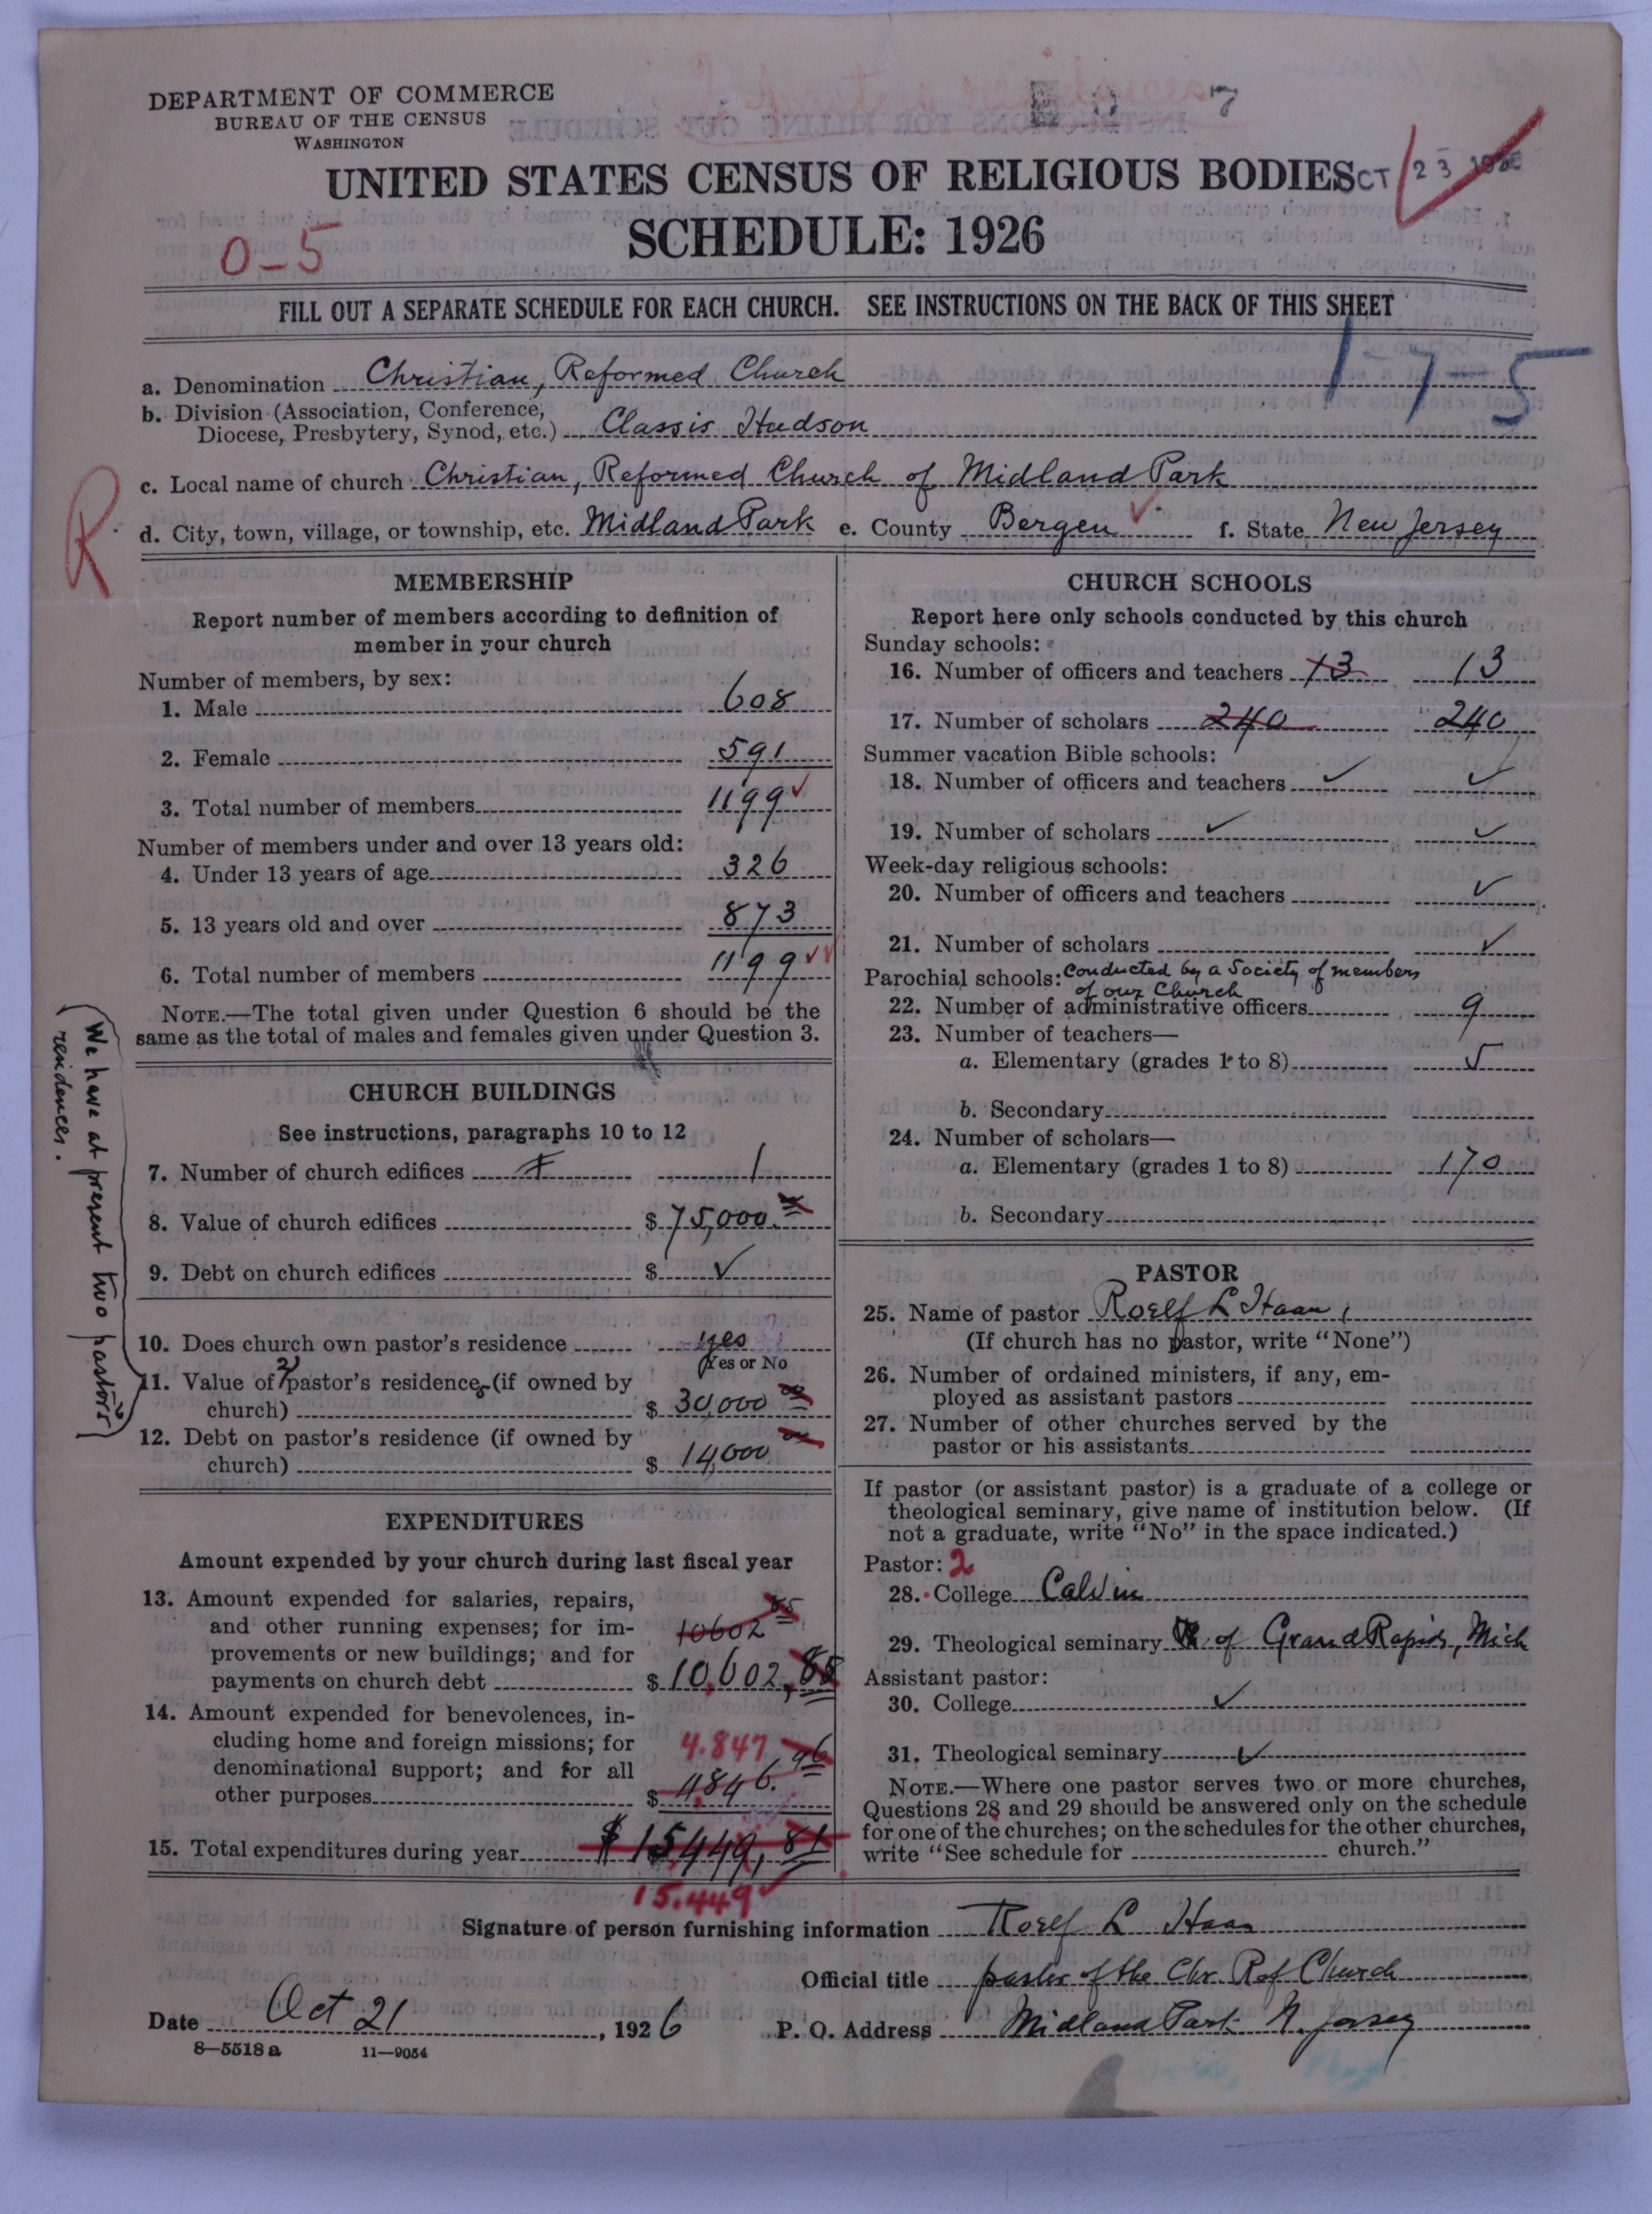 DEPARTMENT OF COMMERCE
BUREAU OF THE CENSUS
WASHINGTON
7
UNITED STATES CENSUS OF RELIGIOUS BODIES
OCT 23 1926
SCHEDULE: 1926
0-5
FILL OUT A SEPARATE SCHEDULE FOR EACH CHURCH. SEE INSTRUCTIONS ON THE BACK OF THIS SHEET
17-5
a. Denomination Christian Reformed Church
b. Division (Association, Conference,
Diocese, Presbytery, Synod, etc.) Classis Hudson
R
c. Local name of church Christian Reformed Church of Midland Park
d. City, town, village, or township, etc. Midland Park e. County Bergen ✓ f. State New Jersey
MEMBERSHIP
Report number of members according to definition of
member in your church
Number of members, by sex:
1. Male 608
2. Female 591
3. Total number of members 1199 ✓
Number of members under and over 13 years old:
4. Under 13 years of age 326
5. 13 years old and over 873
6. Total number of members 1199 ✓✓
NOTE.—The total given under Question 6 should be the
same as the total of males and females given under Question 3.
CHURCH BUILDINGS
See instructions, paragraphs 10 to 12
7. Number of church edifices 1 1
8. Value of church edifices $ 75,000.00
9. Debt on church edifices $ ✓
10. Does church own pastor's residence yes
(Yes or No
11. Value of 2 pastor's residences (if owned by
church) $ 30,000 00
12. Debt on pastor's residence (if owned by
church) $ 14,000 00
(We have at present two pastor's
residences.)
EXPENDITURES
Amount expended by your church during last fiscal year
13. Amount expended for salaries, repairs,
and other running expenses; for im-
provements or new buildings; and for
payments on church debt
10602 85
$ 10,602,85
14. Amount expended for benevolences, in-
cluding home and foreign missions; for
denominational support; and for all
other purposes
4.847
$ 4846.96
15. Total expenditures during year $ 15,449,81
15.449 ✓
CHURCH SCHOOLS
Report here only schools conducted by this church
Sunday schools:
16. Number of officers and teachers 13 13
17. Number of scholars 240 240
Summer vacation Bible schools:
18. Number of officers and teachers ✓ ✓
19. Number of scholars ✓ ✓
Week-day religious schools:
20. Number of officers and teachers ✓
21. Number of scholars ✓
Parochial schools: Conducted by a Society of members
of our Church
22. Number of administrative officers 9
23. Number of teachers—
a. Elementary (grades 1 to 8) 5
b. Secondary
24. Number of scholars—
a. Elementary (grades 1 to 8) 170
b. Secondary
PASTOR
25. Name of pastor Roelf L Haan,
(If church has no pastor, write "None")
26. Number of ordained ministers, if any, em-
ployed as assistant pastors
27. Number of other churches served by the
pastor or his assistants
If pastor (or assistant pastor) is a graduate of a college or
theological seminary, give name of institution below. (If
not a graduate, write "No" in the space indicated.)
Pastor: 2
28. College Calvin
29. Theological seminary of Grand Rapids, Mich
Assistant pastor:
30. College ✓
31. Theological seminary ✓
NOTE.—Where one pastor serves two or more churches,
Questions 28 and 29 should be answered only on the schedule
for one of the churches; on the schedules for the other churches,
write "See schedule for church."
Signature of person furnishing information Roelf L Haan
Official title pastor of the Chr. Ref Church
Date Oct 21, 1926 P. O. Address Midland Park N. Jersey
8—5518 a 11—9054